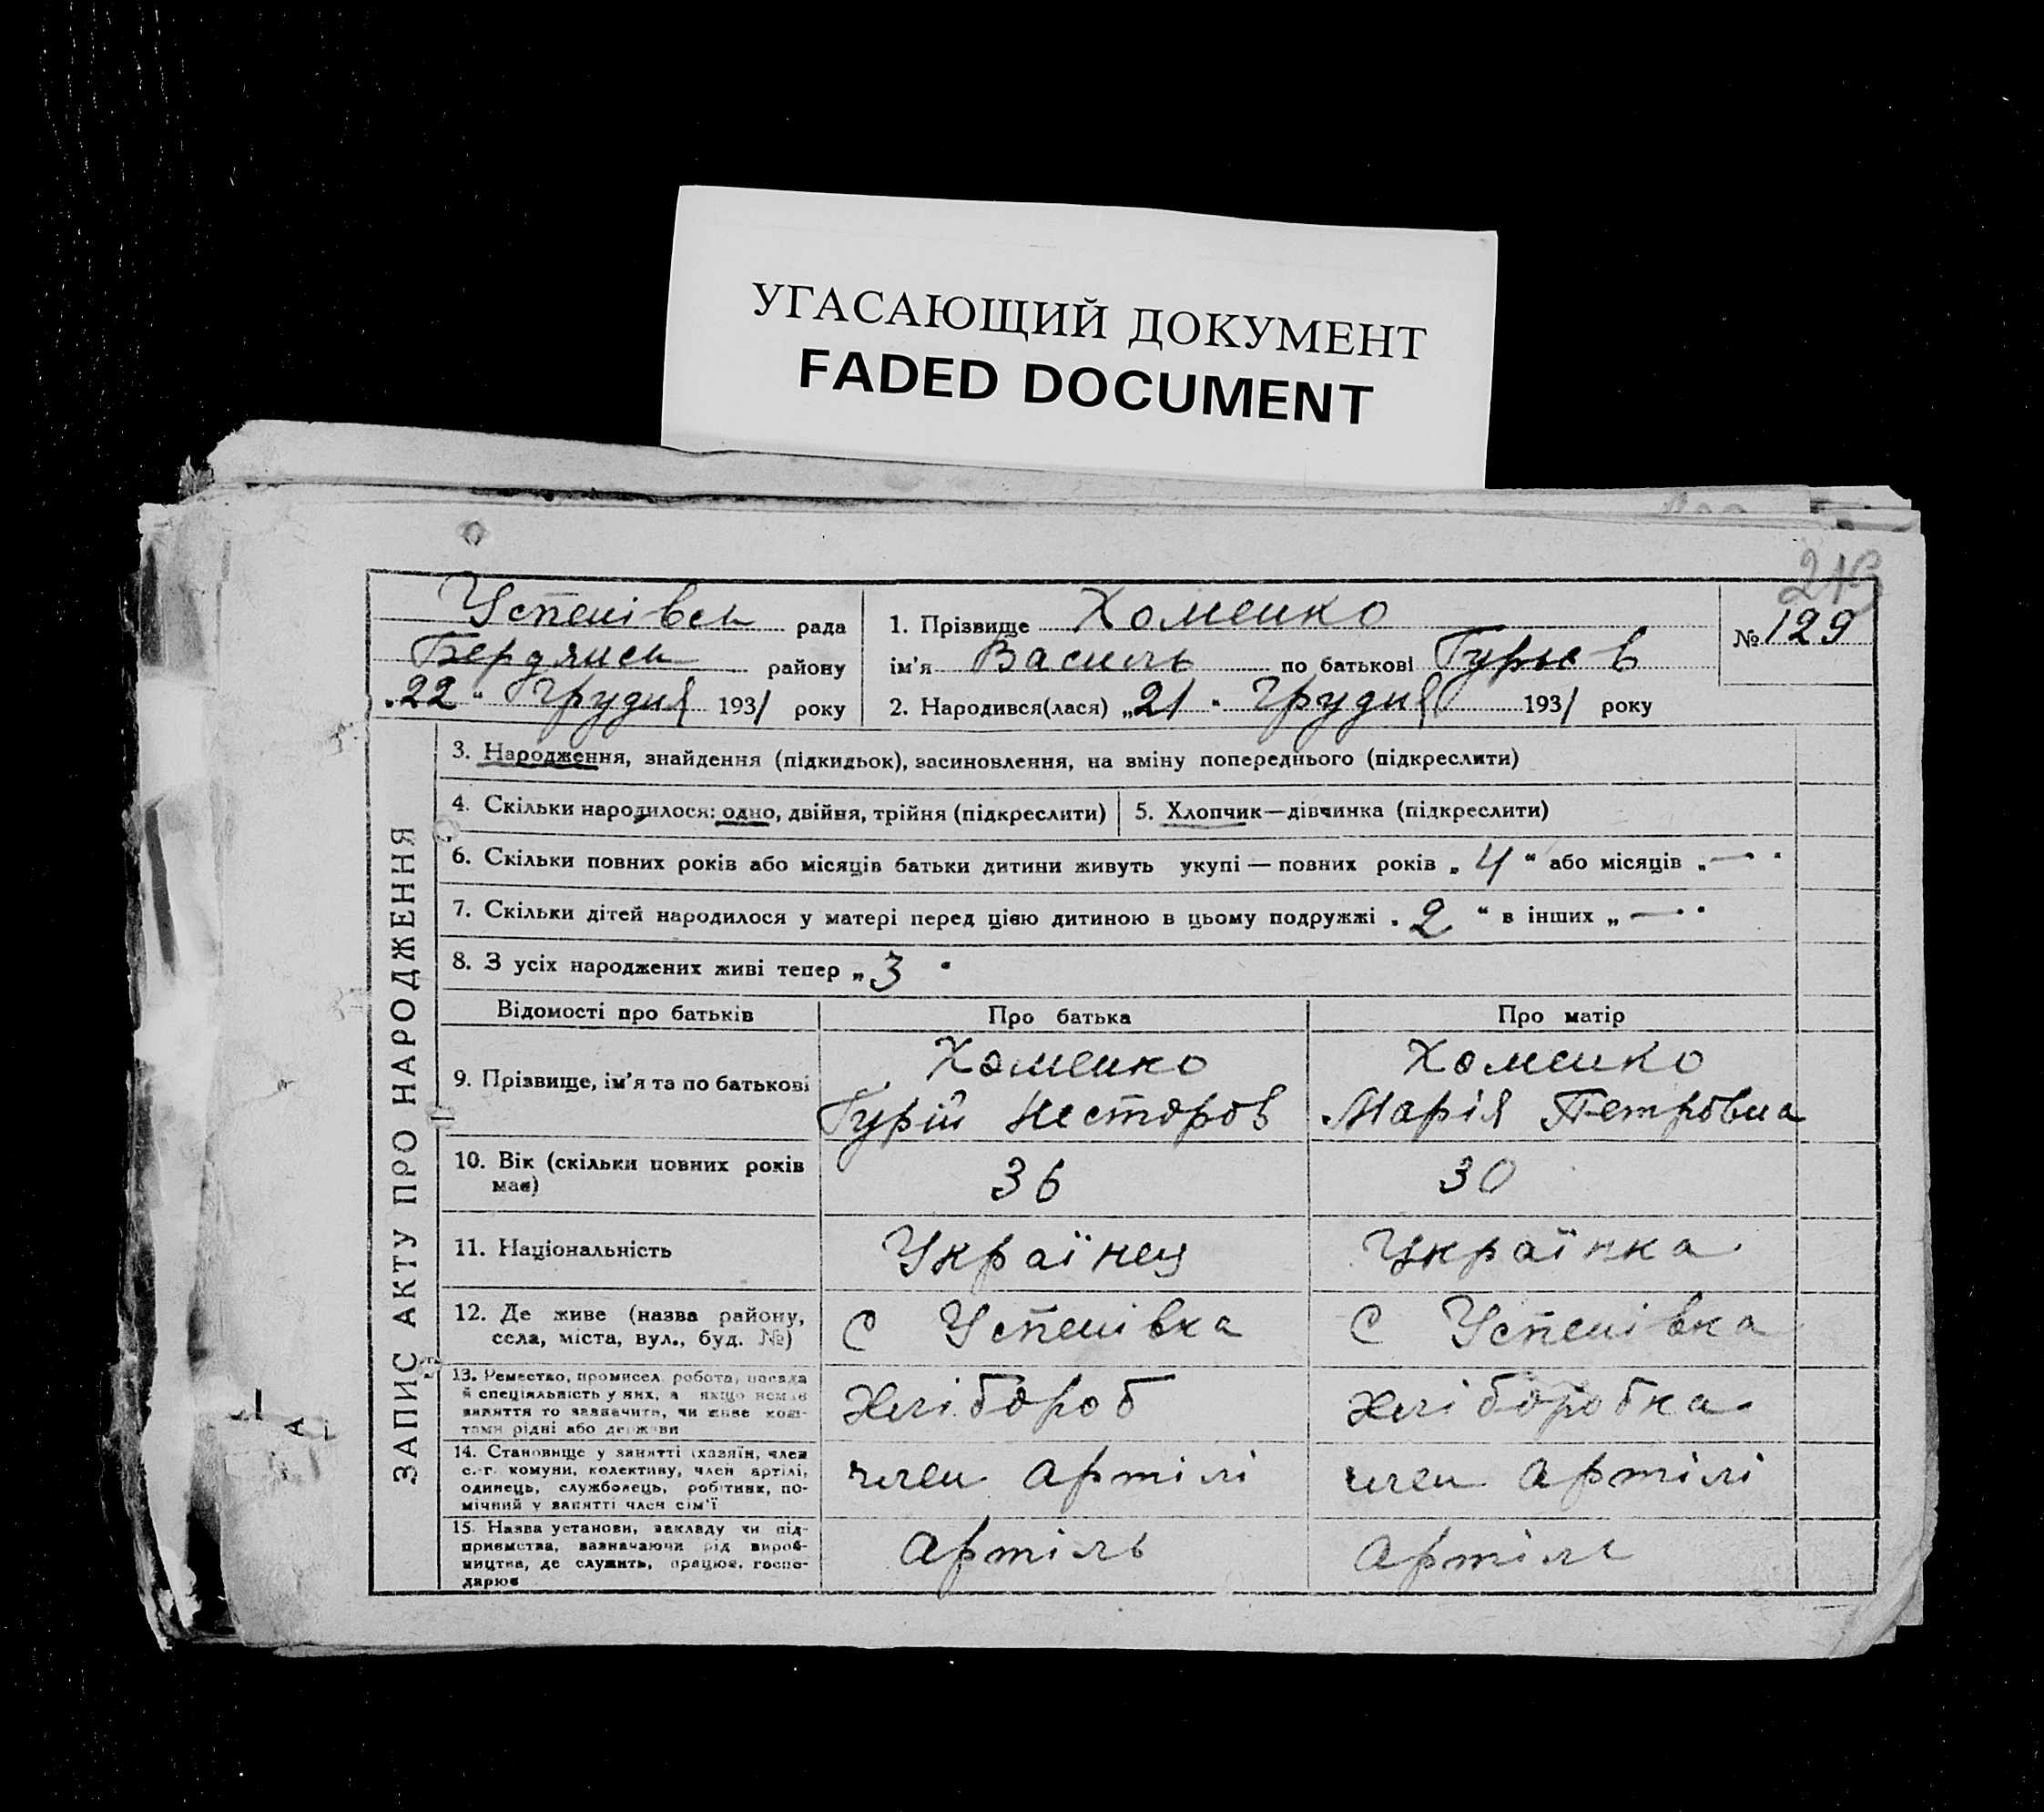 УГАСАЮЩИЙ ДОКУМЕНТ
FADED DOCUMENT
ЗАПИС АКТУ ПРО НАРОДЖЕННЯ
Успенівськ рада
Бердянськ району
„22“ Грудня 1931 року
1. Прізвище Хоменко
ім'я Василь по батькові Гурьев
2. Народився(лася) „21“ Грудня 1931 року
№ 129
3. Народження, знайдення (підкидьок), засиновлення, на зміну попереднього (підкреслити)
4. Скільки народилося: одно, двійня, трійня (підкреслити) 5. Хлопчик—дівчинка (підкреслити)
6. Скільки повних років або місяців батьки дитини живуть укупі — повних років „4“ або місяців „—“
7. Скільки дітей народилося у матері перед цією дитиною в цьому подружжі „2“ в інших „—“
8. З усіх народжених живі тепер „3“
Відомості про батьків Про батька Про матір
9. Прізвище, ім'я та по батькові
Хоменко
Гурій Несторов
Хоменко
Марія Петровна
10. Вік (скільки повних років
має)
36 30
11. Національність Українец Українка
12. Де живе (назва району,
села, міста, вул., буд. №)
С Успенівка С Успенівка
13. Ремество, промисел, робота, посада
й спеціяльність у них, а якщо немає
заняття то зазначити, чи живе кош-
тами рідні або держави
Хлібороб Хліборобка
14. Становище у занятті (хазяїн, член
с.-г. комуни, колективу, член артілі,
одинець, службовець, робітник, по-
мічний у занятті член сім'ї
член артілі член артілі
15. Назва установи, закладу чи під-
приємства, зазначаючи рід вироб-
ництва, де служить, працює, госпо-
дарює
Артіль Артіль